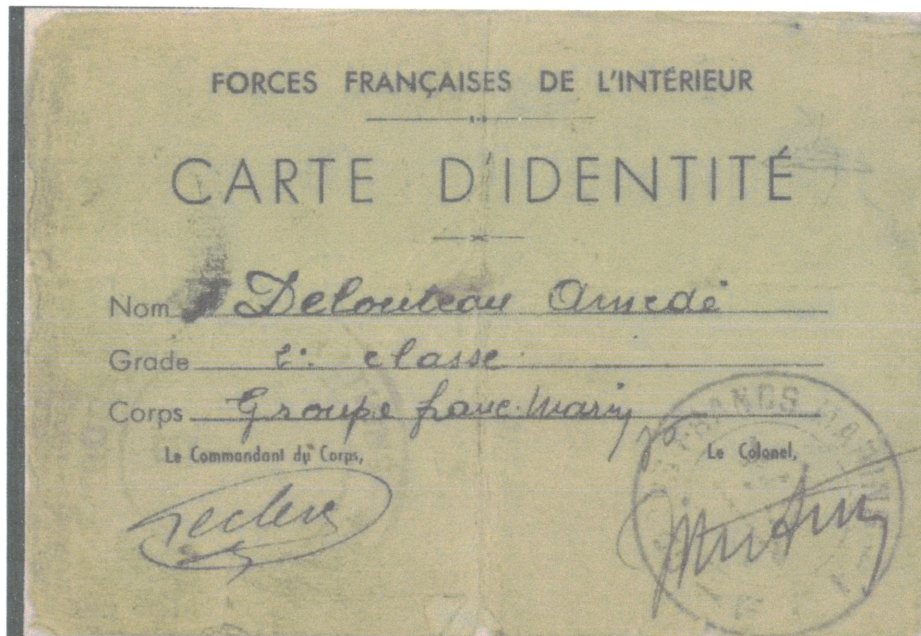 FORCES FRANÇAISES DE L'INTÉRIEUR
CARTE D'IDENTITÉ
Nom Delouteau Amedé
Grade 2e classe
Corps Groupe franc Marin
Le Commandant du Corps,
Le Colonel,
Leclerc
FRANCS MARTIN